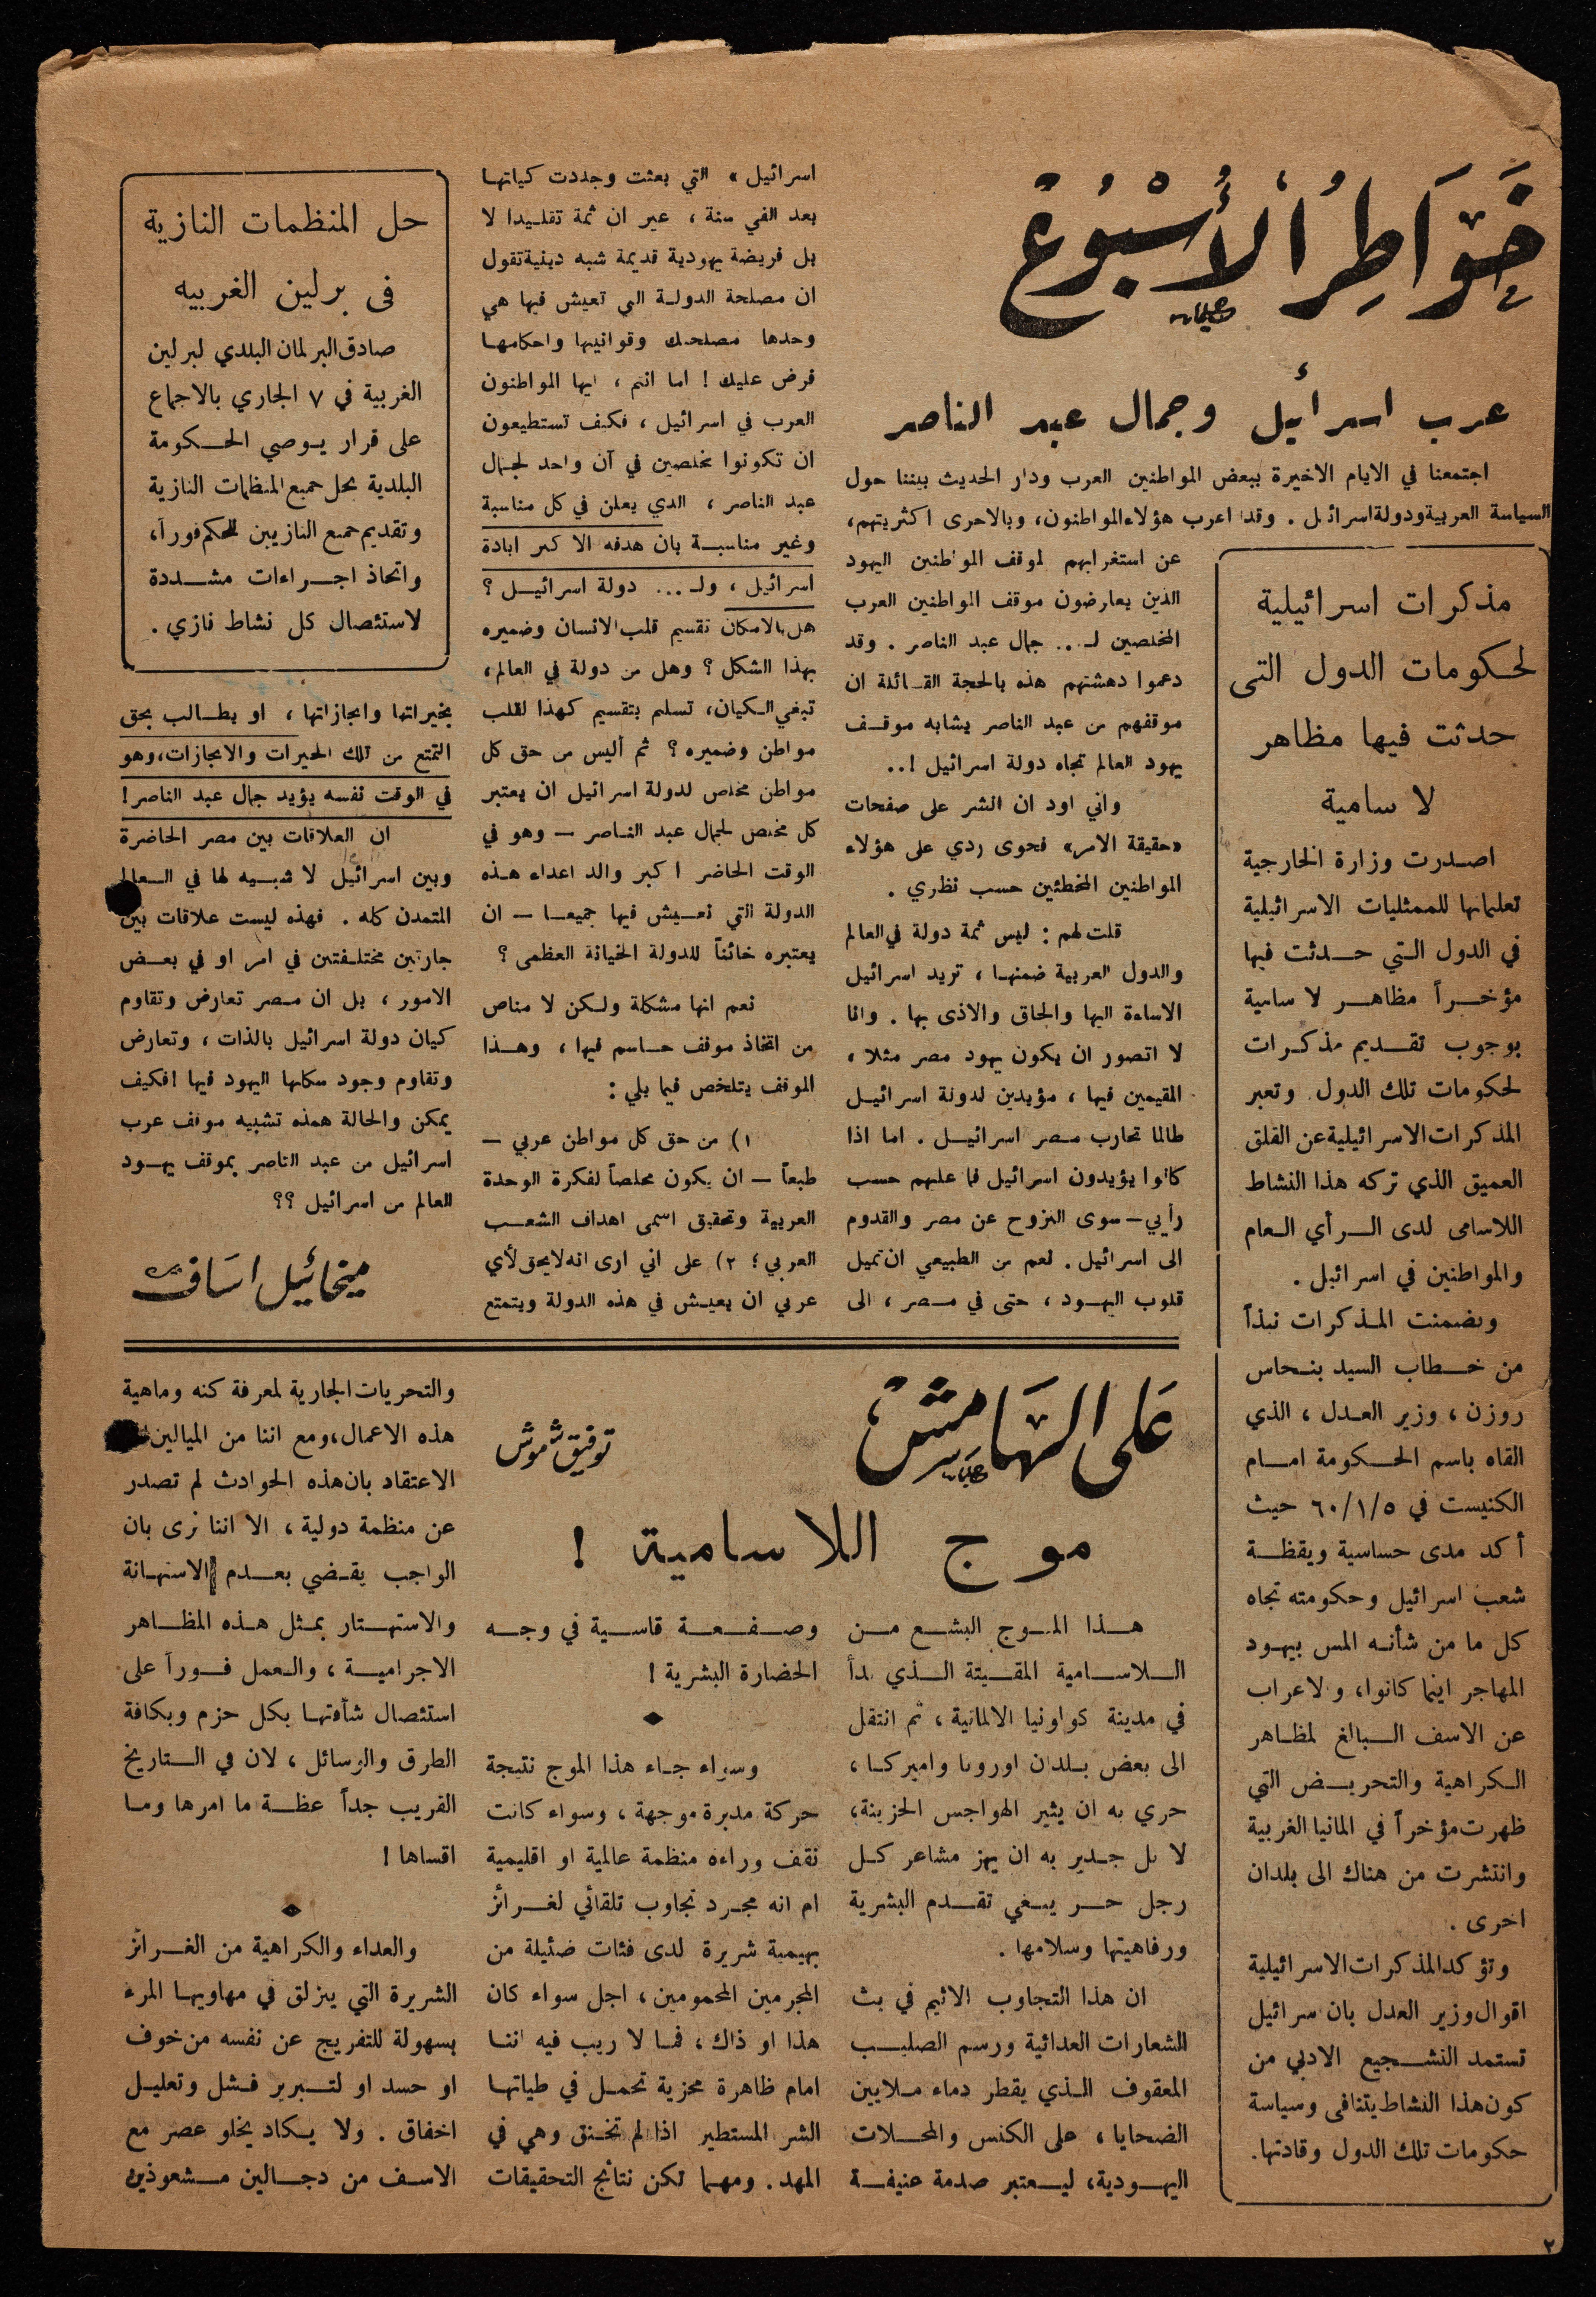 خَوَاطِرُ الأُسْبُوعْ
عرب اسرائيل وجمال عبد الناصر
اجتمعنا في الايام الاخيرة ببعض المواطنين العرب ودار الحديث بيننا حول
السياسة العربية ودولة اسرائيل . وقد اعرب هؤلاء المواطنون، وبالاحرى اكثريتهم،
عن استغرابهم لموقف المواطنين اليهود
الذين يعارضون موقف المواطنين العرب
المخلصين لـ .. جمال عبد الناصر . وقد
دعموا دهشتهم هذه بالحجة القائلة ان
موقفهم من عبد الناصر يشابه موقف
يهود العالم تجاه دولة اسرائيل !..
واني اود ان انشر على صفحات
«حقيقة الامر» فحوى ردي على هؤلاء
المواطنين المخطئين حسب نظري .
قلت لهم : ليس ثمة دولة في العالم
والدول العربية ضمنها ، تريد اسرائيل
الاساءة اليها والحاق والاذى بها . وانا
لا اتصور ان يكون يهود مصر مثلا ،
المقيمين فيها ، مؤيدين لدولة اسرائيل
طالما تحارب مصر اسرائيل . اما اذا
كانوا يؤيدون اسرائيل فما عليهم حسب
رأيي – سوى النزوح عن مصر والقدوم
الى اسرائيل . نعم من الطبيعي ان تميل
قلوب اليهود ، حتى في مصر ، الى
اسرائيل » التي بعثت وجددت كيانها
بعد الفي سنة ، غير ان ثمة تقليدا لا
بل فريضة يهودية قديمة شبه دينية تقول
ان مصلحة الدولة التي تعيش فيها هي
وحدها مصلحتك وقوانينها واحكامها
فرض عليك ! اما انتم ، ايها المواطنون
العرب في اسرائيل ، فكيف تستطيعون
ان تكونوا مخلصين في آن واحد لجمال
عبد الناصر ، الذي يعلن في كل مناسبة
وغير مناسبة بان هدفه الاكبر ابادة
اسرائيل ، ولـ ... دولة اسرائيل ؟
هل بالامكان تقسيم قلب الانسان وضميره
بهذا الشكل ؟ وهل من دولة في العالم ،
تبغي الكيان ، تسلم بتقسيم كهذا لقلب
مواطن وضميره ؟ ثم أليس من حق كل
مواطن مخلص لدولة اسرائيل ان يعتبر
كل مخلص لجمال عبد الناصر – وهو في
الوقت الحاضر اكبر والد اعداء هذه
الدولة التي نعيش فيها جميعا – ان
يعتبره خائناً للدولة الخيانة العظمى ؟
نعم انها مشكلة ولكن لا مناص
من اتخاذ موقف حاسم فيها ، وهذا
الموقف يتلخص فيما يلي :
١) من حق كل مواطن عربي –
طبعاً – ان يكون مخلصاً لفكرة الوحدة
العربية وتحقيق اسمى اهداف الشعب
العربي ؛ ٢) على اني ارى انه لا يحق لأي
عربي ان يعيش في هذه الدولة ويتمتع
بخيراتها وانجازاتها ، او يطالب بحق
التمتع من تلك الخيرات والانجازات ، وهو
في الوقت نفسه يؤيد جمال عبد الناصر !
ان العلاقات بين مصر الحاضرة
وبين اسرائيل لا شبيه لها في العالم
المتمدن كله . فهذه ليست علاقات بين
جارتين مختلفتين في امر او في بعض
الامور ، بل ان مصر تعارض وتقاوم
كيان دولة اسرائيل بالذات ، وتعارض
وتقاوم وجود سكانها اليهود فيها ! فكيف
يمكن والحالة هذه تشبيه موقف عرب
اسرائيل من عبد الناصر بموقف يهود
العالم من اسرائيل ؟؟
ميخائيل اساف
حل المنظمات النازية
فى برلين الغربيه
صادق البرلمان البلدي لبرلين
الغربية في ٧ الجاري بالاجماع
على قرار يوصي الحكومة
البلدية بحل جميع المنظمات النازية
وتقديم جميع النازيين للحكم فوراً ،
واتخاذ اجراءات مشددة
لاستئصال كل نشاط نازي .
مذكرات اسرائيلية
لحكومات الدول التى
حدثت فيها مظاهر
لا سامية
اصدرت وزارة الخارجية
تعليماتها للممثليات الاسرائيلية
في الدول التي حدثت فيها
مؤخراً مظاهر لا سامية
بوجوب تقديم مذكرات
لحكومات تلك الدول وتعبر
المذكرات الاسرائيلية عن القلق
العميق الذي تركه هذا النشاط
اللاسامى لدى الرأي العام
والمواطنين في اسرائيل .
وتضمنت المذكرات نبذاً
من خطاب السيد بنحاس
روزن ، وزير العدل ، الذي
القاه باسم الحكومة امام
الكنيست في ٦٠/١/٥ حيث
أكد مدى حساسية ويقظة
شعب اسرائيل وحكومته تجاه
كل ما من شأنه المس بيهود
المهاجر اينما كانوا ، ولاعراب
عن الاسف البالغ لمظاهر
الكراهية والتحريض التي
ظهرت مؤخراً في المانيا الغربية
وانتشرت من هناك الى بلدان
اخرى .
وتؤكد المذكرات الاسرائيلية
اقوال وزير العدل بان سرائيل
تستمد التشجيع الادبي من
كون هذا النشاط يتنافى وسياسة
حكومات تلك الدول وقادتها .
عَلى الهَامِشْ
توفيق شموش
موج اللا سامية !
هذا الموج البشع من
اللاسامية المقيتة الذي بدأ
في مدينة كولونيا الالمانية ، ثم انتقل
الى بعض بلدان اوروبا واميركا ،
حري به ان يثير الهواجس الحزينة ،
لا بل جدير به ان يهز مشاعر كل
رجل حر يبغي تقدم البشرية
ورفاهيتها وسلامها .
ان هذا التجاوب الاثيم في بث
الشعارات العدائية ورسم الصليب
المعقوف الذي يقطر دماء ملايين
الضحايا ، على الكنس والمحلات
اليهودية ، ليعتبر صدمة عنيفة
وصفعة قاسية في وجه
الحضارة البشرية !
وسواء جاء هذا الموج نتيجة
حركة مدبرة موجهة ، وسواء كانت
تقف وراءه منظمة عالمية او اقليمية
ام انه مجرد تجاوب تلقائي لغرائز
بهيمية شريرة لدى فئات ضئيلة من
المجرمين المحمومين ، اجل سواء كان
هذا او ذاك ، فما لا ريب فيه اننا
امام ظاهرة مخزية تحمل في طياتها
الشر المستطير اذا لم تخنق وهي في
المهد . ومهما تكن نتائج التحقيقات
والتحريات الجارية لمعرفة كنه وماهية
هذه الاعمال ، ومع اننا من الميالين
الاعتقاد بان هذه الحوادث لم تصدر
عن منظمة دولية ، الا اننا نرى بان
الواجب يقضي بعدم الاستهانة
والاستهتار بمثل هذه المظاهر
الاجرامية ، والعمل فوراً على
استئصال شأفتها بكل حزم وبكافة
الطرق والوسائل ، لان في التاريخ
القريب جداً عظة ما امرها وما
اقساها !
والعداء والكراهية من الغرائز
الشريرة التي ينزلق في مهاويها المرء
بسهولة للتفريج عن نفسه من خوف
او حسد او لتبرير فشل وتعليل
اخفاق . ولا يكاد يخلو عصر مع
الاسف من دجالين مشعوذين
٢